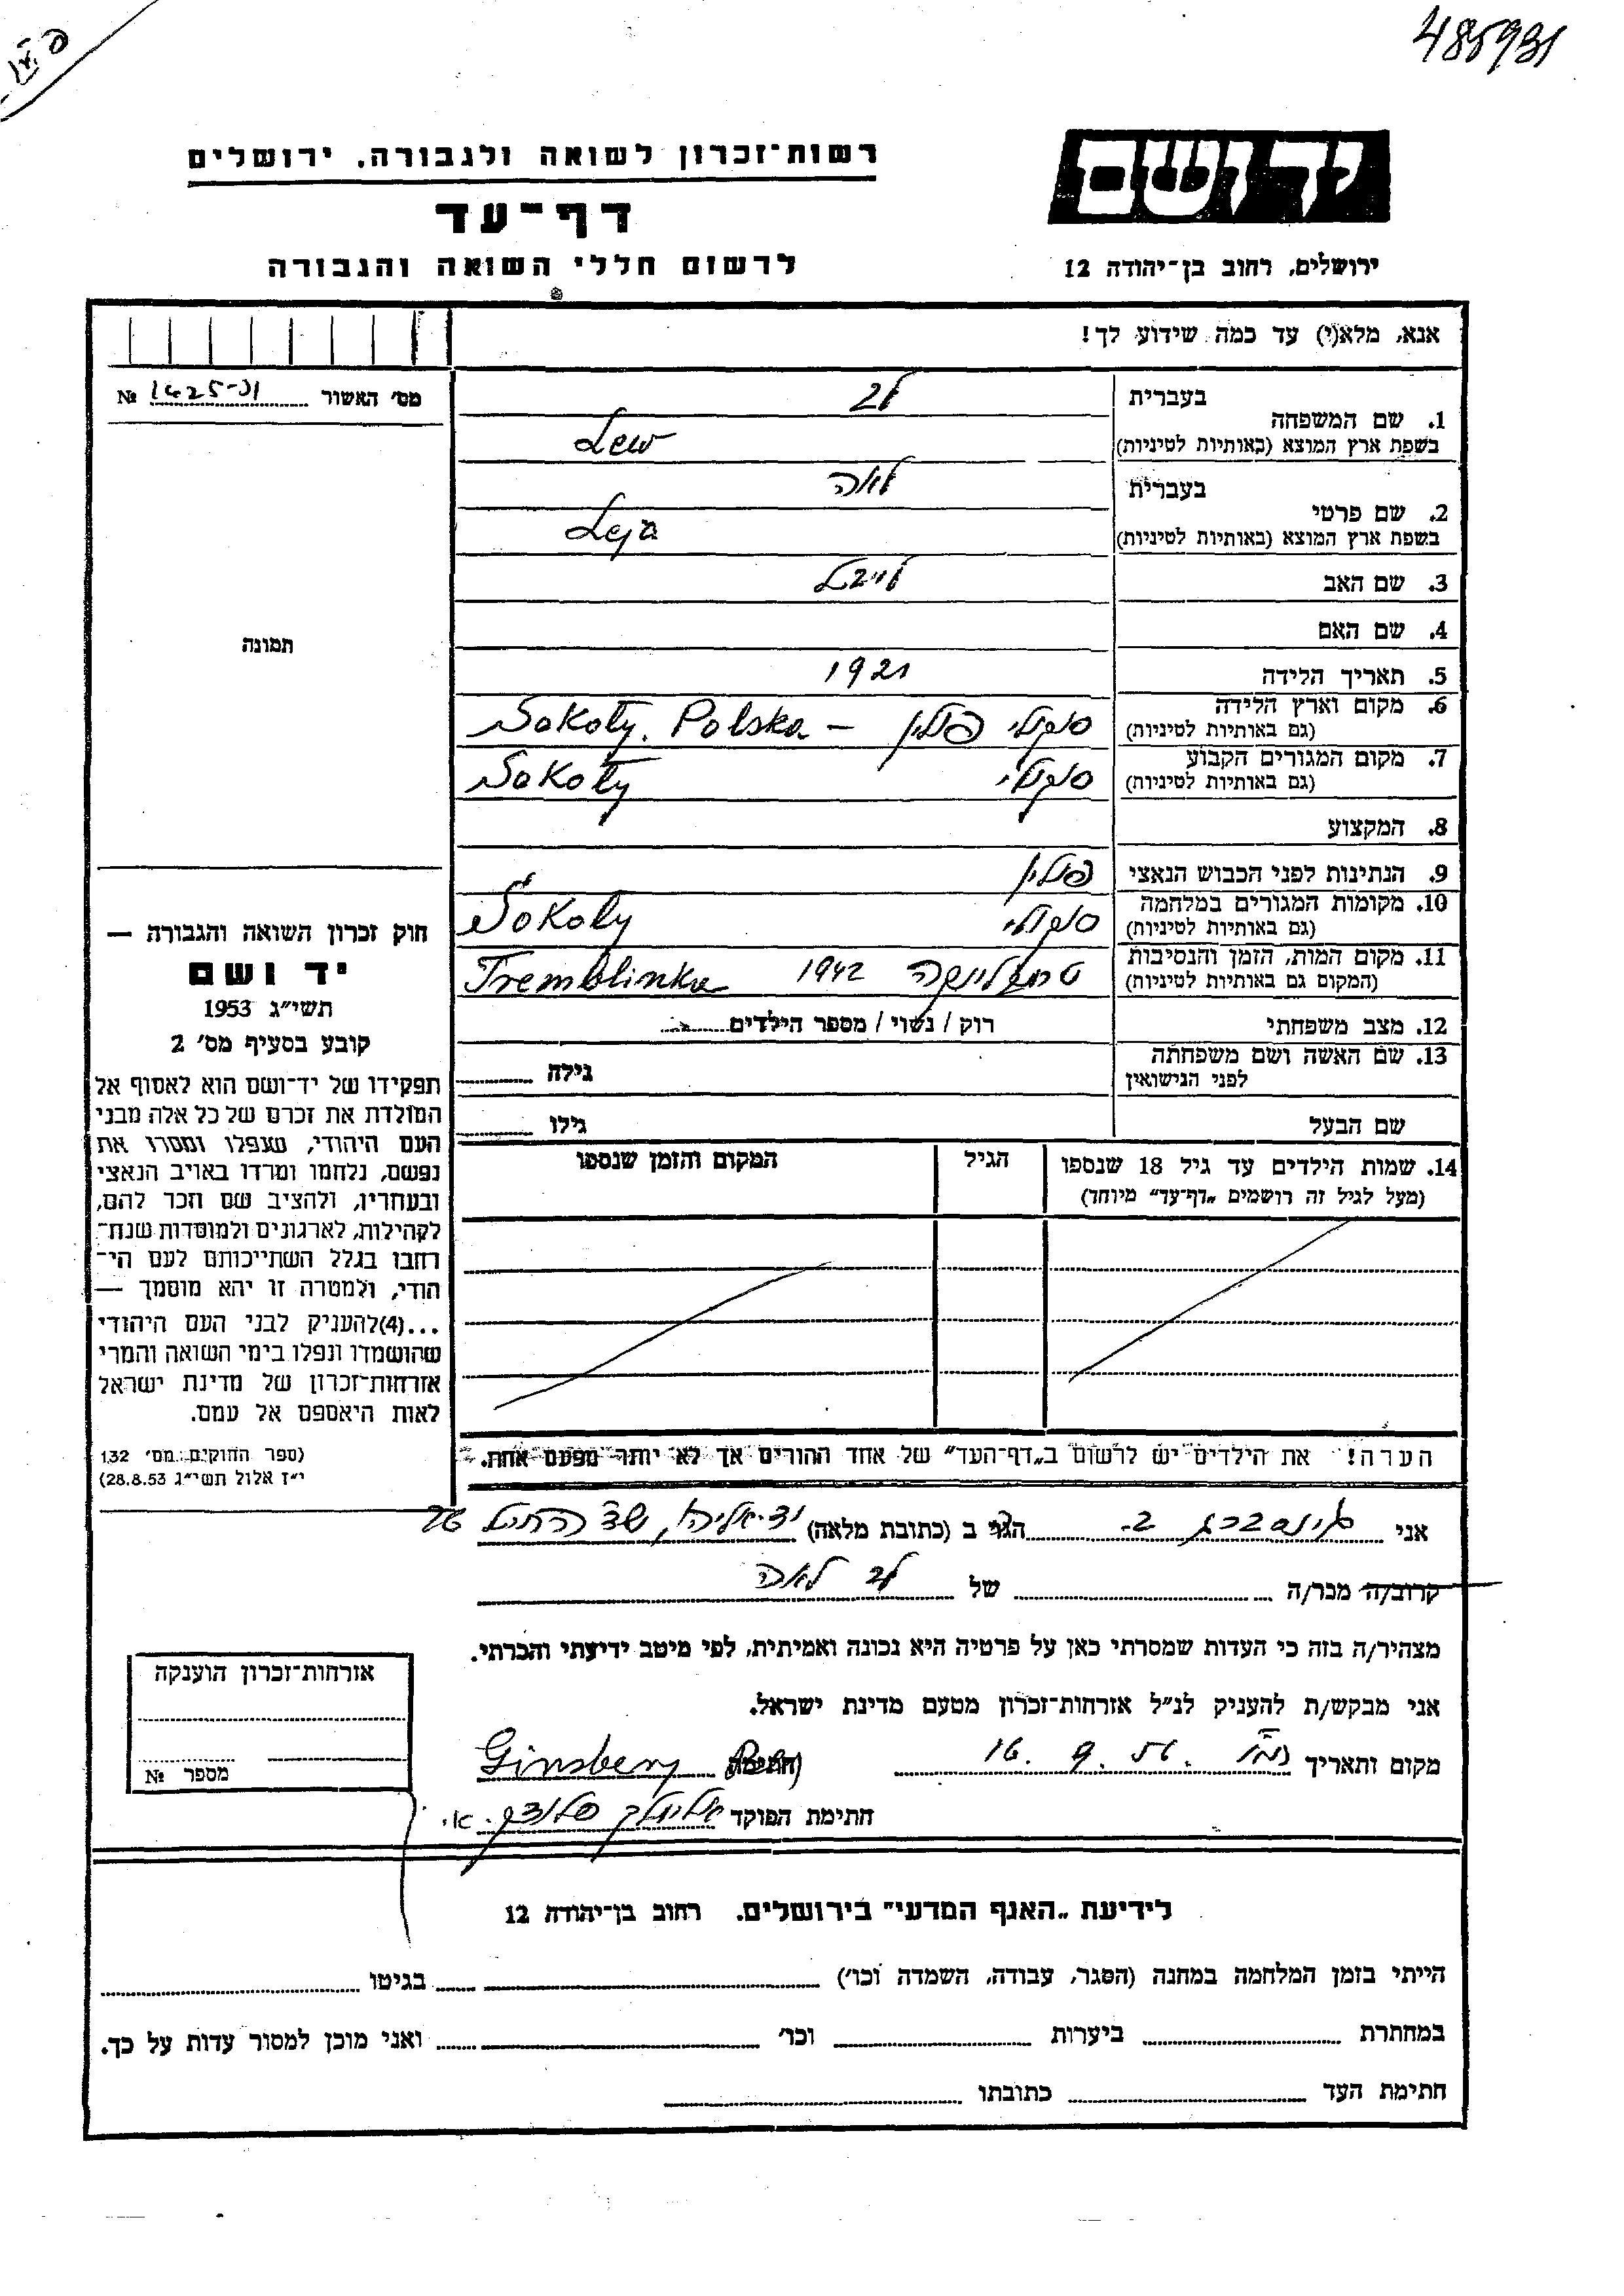 485931
יד ושם
ירושלים, רחוב בן־יהודה 12
רשות־זכרון לשואה ולגבורה, ירושלים
דף־עד
לרשום חללי השואה והגבורה
אנא, מלא(י) עד כמה שידוע לך!
מס׳ האשור № 1425-01
1. שם המשפחה בעברית לב
בשפת ארץ המוצא (באותיות לטיניות) Lew
2. שם פרטי בעברית לאה
בשפת ארץ המוצא (באותיות לטיניות) Leja
3. שם האב לייבל
4. שם האם
5. תאריך הלידה 1921
6. מקום וארץ הלידה (גם באותיות לטיניות) סוקולי פולין – Sokoły. Polska
7. מקום המגורים הקבוע (גם באותיות לטיניות) סוקולי Sokoły
8. המקצוע
9. הנתינות לפני הכבוש הנאצי פולין
10. מקומות המגורים במלחמה (גם באותיות לטיניות) סוקולי Sokoły
11. מקום המות, הזמן והנסיבות (המקום גם באותיות לטיניות) טרמבלינקה 1942 Tremblinka
12. מצב משפחתי רוק / נשוי / מספר הילדים
13. שם האשה ושם משפחתה לפני הנישואין גילה
שם הבעל גילו
14. שמות הילדים עד גיל 18 שנספו הגיל המקום והזמן שנספו
(מעל לגיל זה רושמים „דף־עד״ מיוחד)
הערה! את הילדים יש לרשום ב„דף־העד״ של אחד ההורים אך לא יותר מפעם אחת.
תמונה
חוק זכרון השואה והגבורה —
יד ושם
תשי״ג 1953
קובע בסעיף מס׳ 2
תפקידו של יד־ושם הוא לאסוף אל
המולדת את זכרם של כל אלה מבני
העם היהודי, שנפלו ומסרו את
נפשם, נלחמו ומרדו באויב הנאצי
ובעוזריו, ולהציב שם וזכר להם,
לקהילות, לארגונים ולמוסדות שנח־
רבו בגלל השתייכותם לעם הי־
הודי, ולמטרה זו יהא מוסמך —
...(4) להעניק לבני העם היהודי
שהושמדו ונפלו בימי השואה והמרי
אזרחות־זכרון של מדינת ישראל
לאות היאספם אל עמם.
(ספר החוקים מס׳ 132
י״ז אלול תשי״ג 28.8.53)
אני גינסברג ב. הגר ב (כתובת מלאה) יד-אליהו, שד החיל
קרוב/ה מכר/ה של לב לאה
מצהיר/ה בזה כי העדות שמסרתי כאן על פרטיה היא נכונה ואמיתית, לפי מיטב ידיעתי והכרתי.
אני מבקש/ת להעניק לנ״ל אזרחות־זכרון מטעם מדינת ישראל.
מקום ותאריך 16. 9. 56. חתימה Ginsberg
חתימת הפוקד
אזרחות־זכרון הוענקה
מספר №
לידיעת „האגף המדעי״ בירושלים. רחוב בן־יהודה 12
הייתי בזמן המלחמה במחנה (הסגר, עבודה, השמדה וכו׳) בגיטו
במחתרת ביערות וכו׳ ואני מוכן למסור עדות על כך.
חתימת העד כתובתו